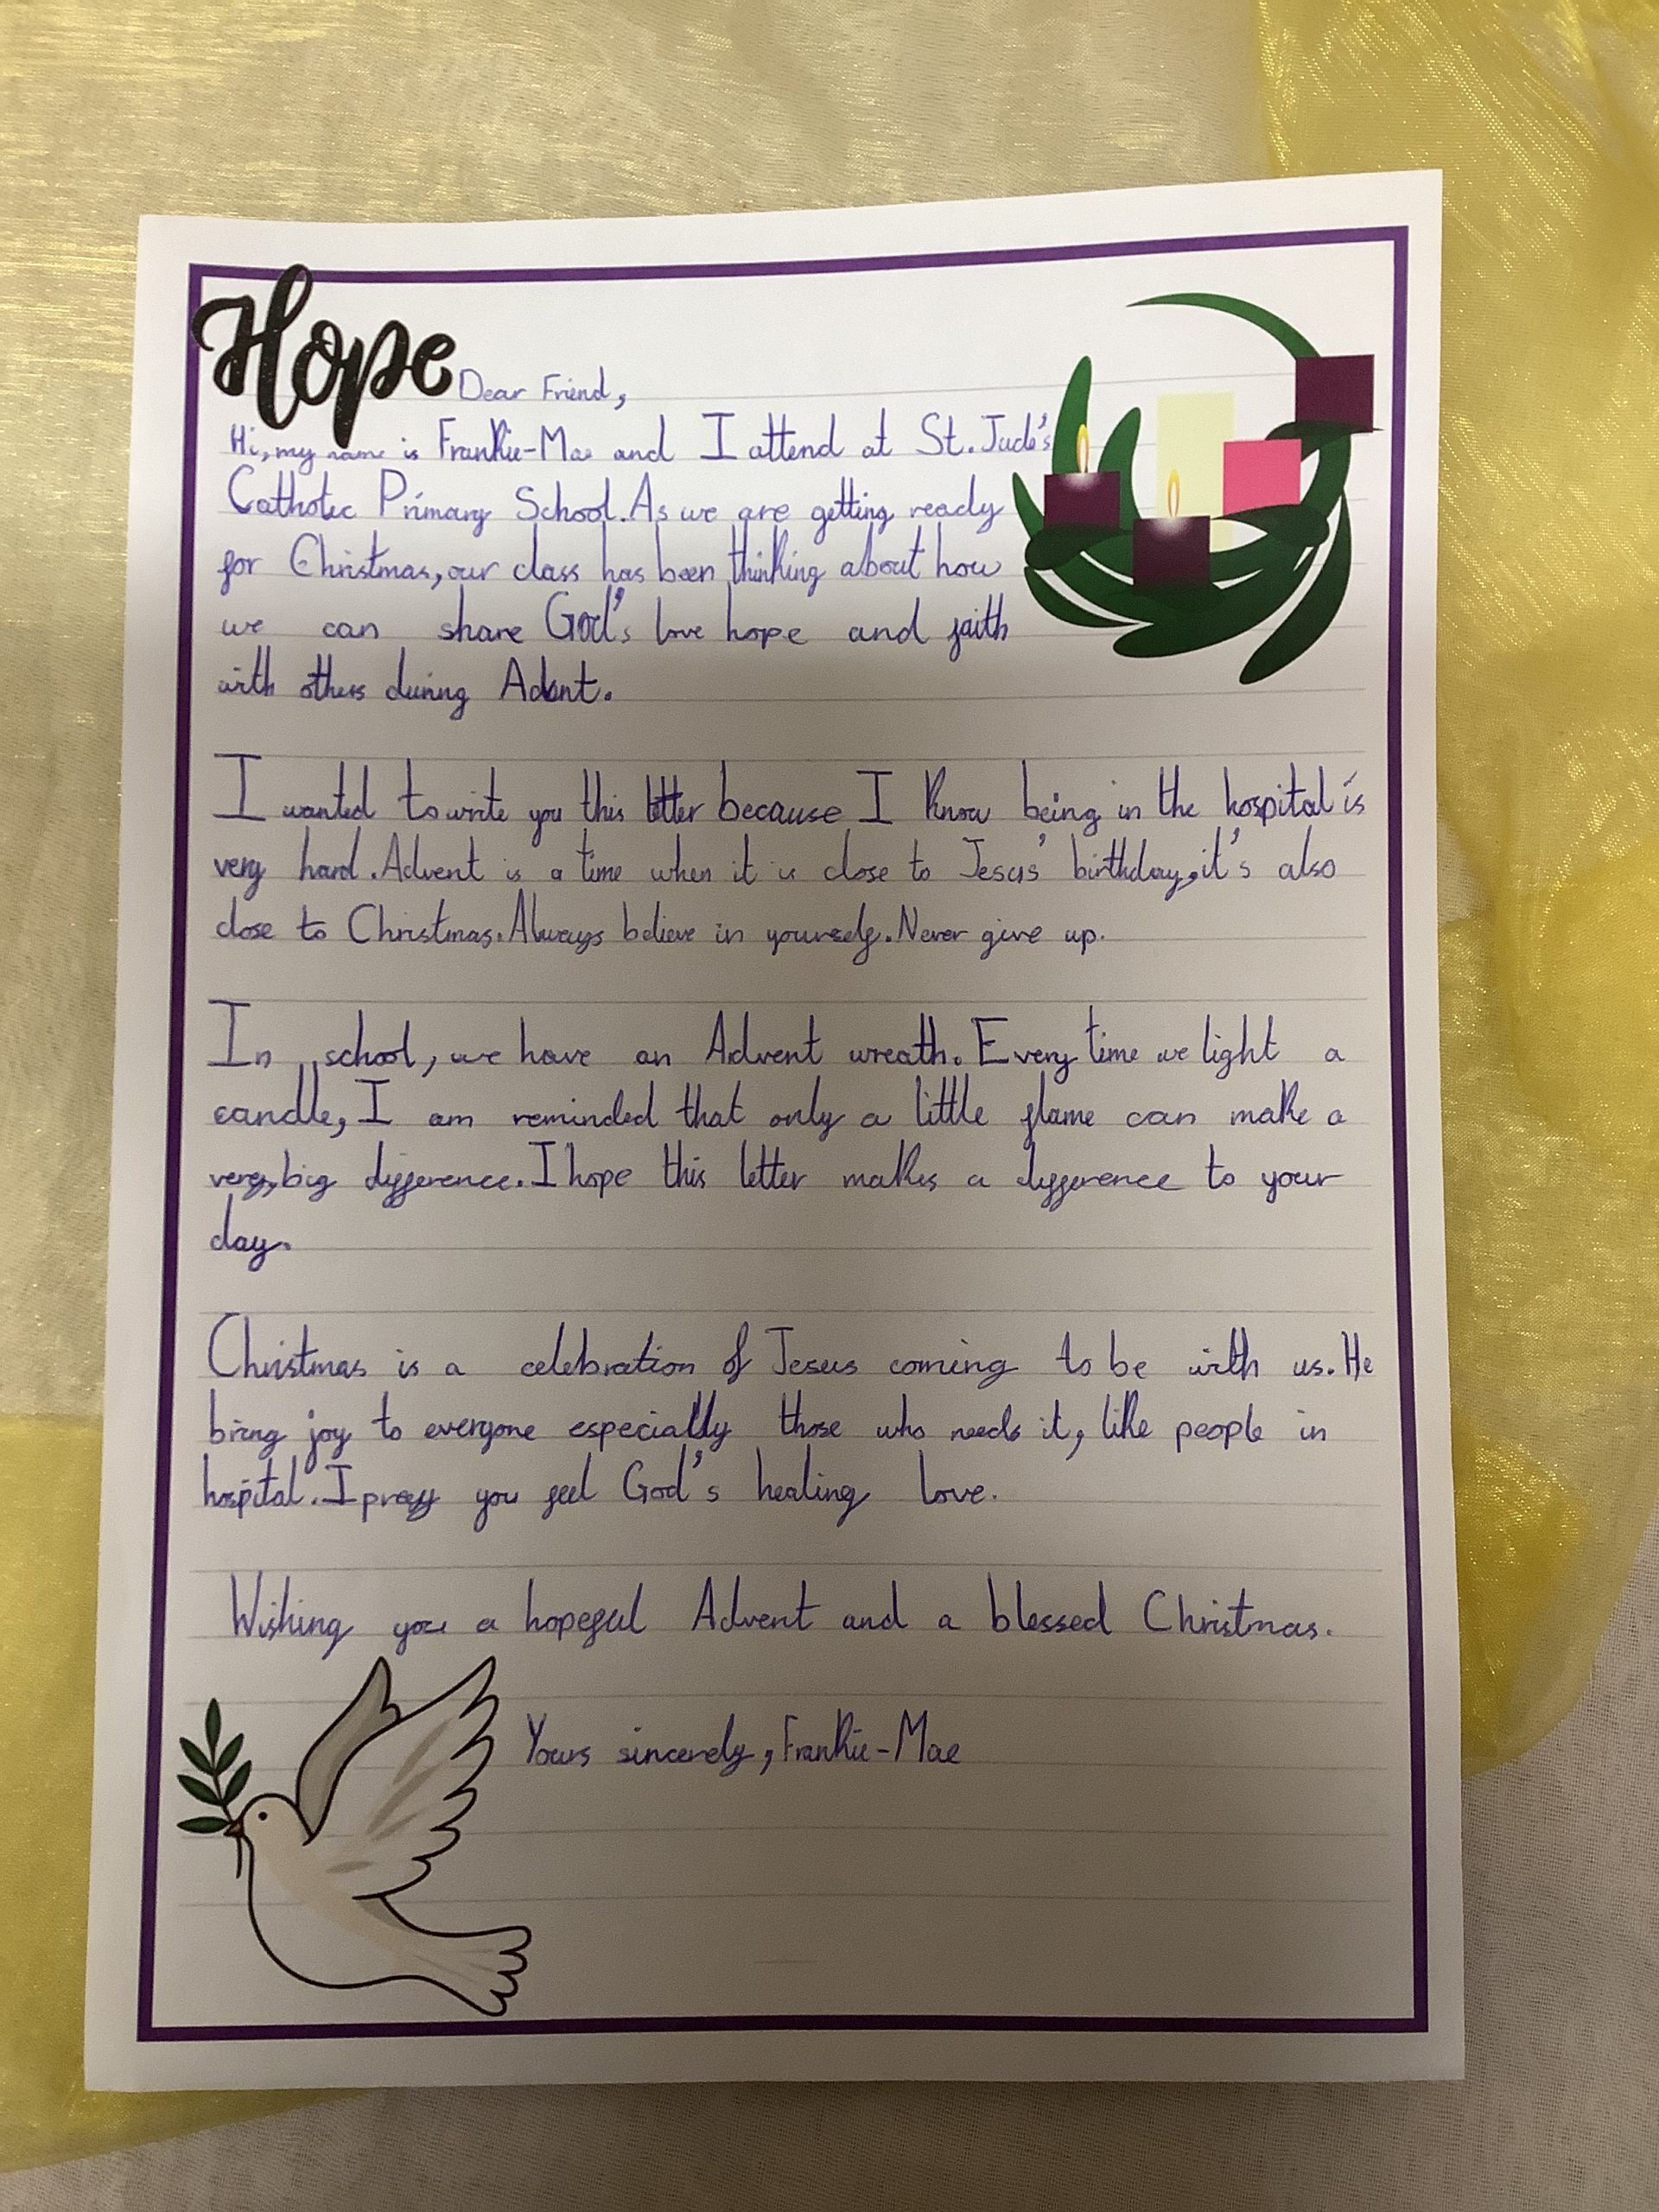 Hope
Dear Friend,
Hi, my name is Frankie-Mae and I attend at St. Jude's
Catholic Primary School. As we are getting ready
for Christmas, our class has been thinking about how
we can share God's love hope and faith
with others during Advent.
I wanted to write you this letter because I know being in the hospital is
very hard. Advent is a time when it is close to Jesus' birthday, it's also
close to Christmas. Always believe in yourself. Never give up.
In school, we have an Advent wreath. Every time we light a
candle, I am reminded that only a little flame can make a
very big difference. I hope this letter makes a difference to your
day.
Christmas is a celebration of Jesus coming to be with us. He
bring joy to everyone especially those who needs it, like people in
hospital. I pray you feel God's healing love.
Wishing you a hopeful Advent and a blessed Christmas.
Yours sincerely, Frankie-Mae